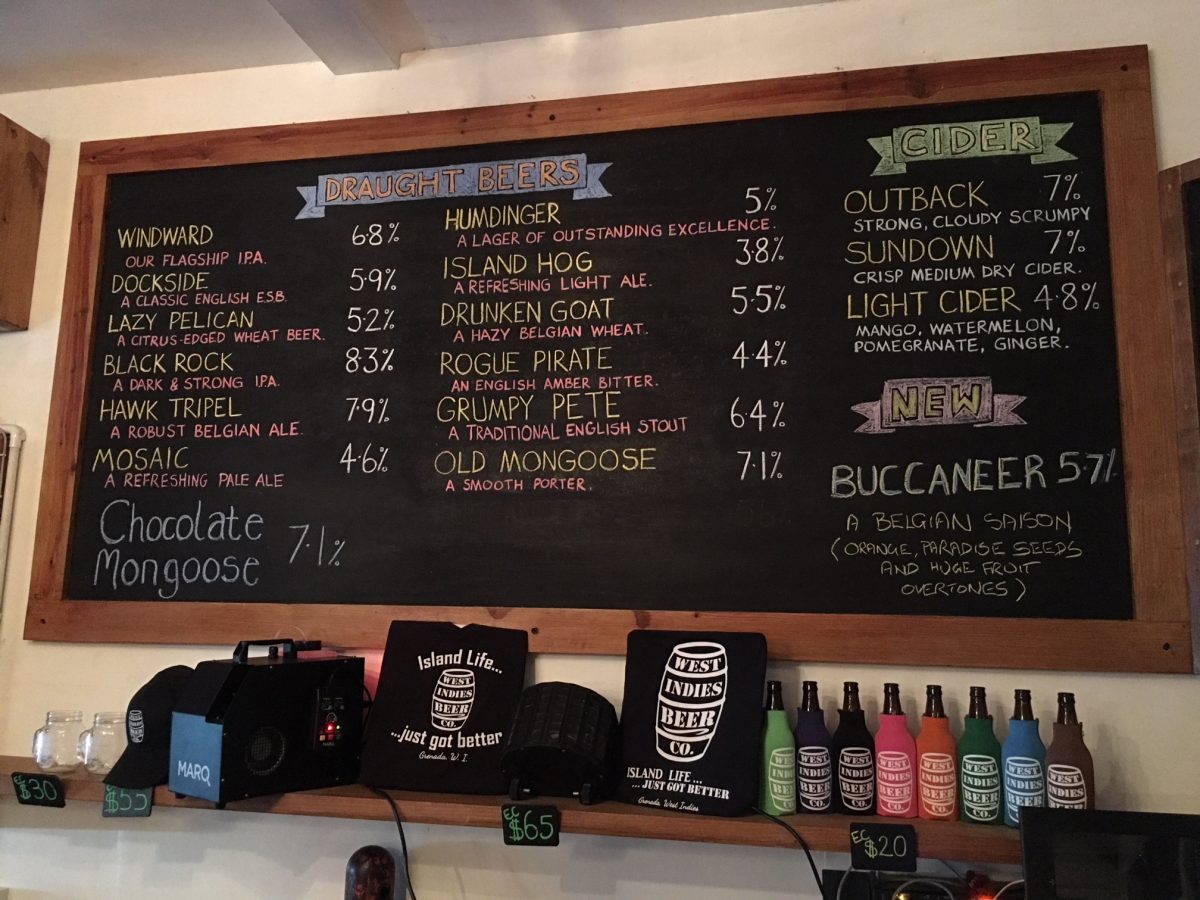 DRAUGHT BEERS
WINDWARD 6.8%
OUR FLAGSHIP I.P.A.
DOCKSIDE 5.9%
A CLASSIC ENGLISH E.S.B.
LAZY PELICAN 5.2%
A CITRUS-EDGED WHEAT BEER.
BLACK ROCK 8.3%
A DARK & STRONG I.P.A.
HAWK TRIPEL 7.9%
A ROBUST BELGIAN ALE.
MOSAIC 4.6%
A REFRESHING PALE ALE
Chocolate
Mongoose 7.1%
HUMDINGER 5%
A LAGER OF OUTSTANDING EXCELLENCE.
ISLAND HOG 3.8%
A REFRESHING LIGHT ALE.
DRUNKEN GOAT 5.5%
A HAZY BELGIAN WHEAT.
ROGUE PIRATE 4.4%
AN ENGLISH AMBER BITTER.
GRUMPY PETE 6.4%
A TRADITIONAL ENGLISH STOUT
OLD MONGOOSE 7.1%
A SMOOTH PORTER.
CIDER
OUTBACK 7%
STRONG, CLOUDY SCRUMPY
SUNDOWN 7%
CRISP MEDIUM DRY CIDER.
LIGHT CIDER 4.8%
MANGO, WATERMELON,
POMEGRANATE, GINGER.
NEW
BUCCANEER 5.7%
A BELGIAN SAISON
(ORANGE, PARADISE SEEDS
AND HUGE FRUIT
OVERTONES)
$30
EC $55
MARQ
MARQ
Island Life...
WEST
INDIES
BEER
CO.
...just got better
Grenada, W. I.
EC $65
WEST
INDIES
BEER
CO.
ISLAND LIFE...
...JUST GOT BETTER
Grenada, West Indies
WEST
INDIES
BEER
CO.
WEST
INDIES
BEER
CO.
WEST
INDIES
BEER
CO.
WEST
INDIES
BEER
CO.
WEST
INDIES
BEER
CO.
WEST
INDIES
BEER
CO.
WEST
INDIES
BEER
CO.
WEST
INDIES
BEER
EC $20